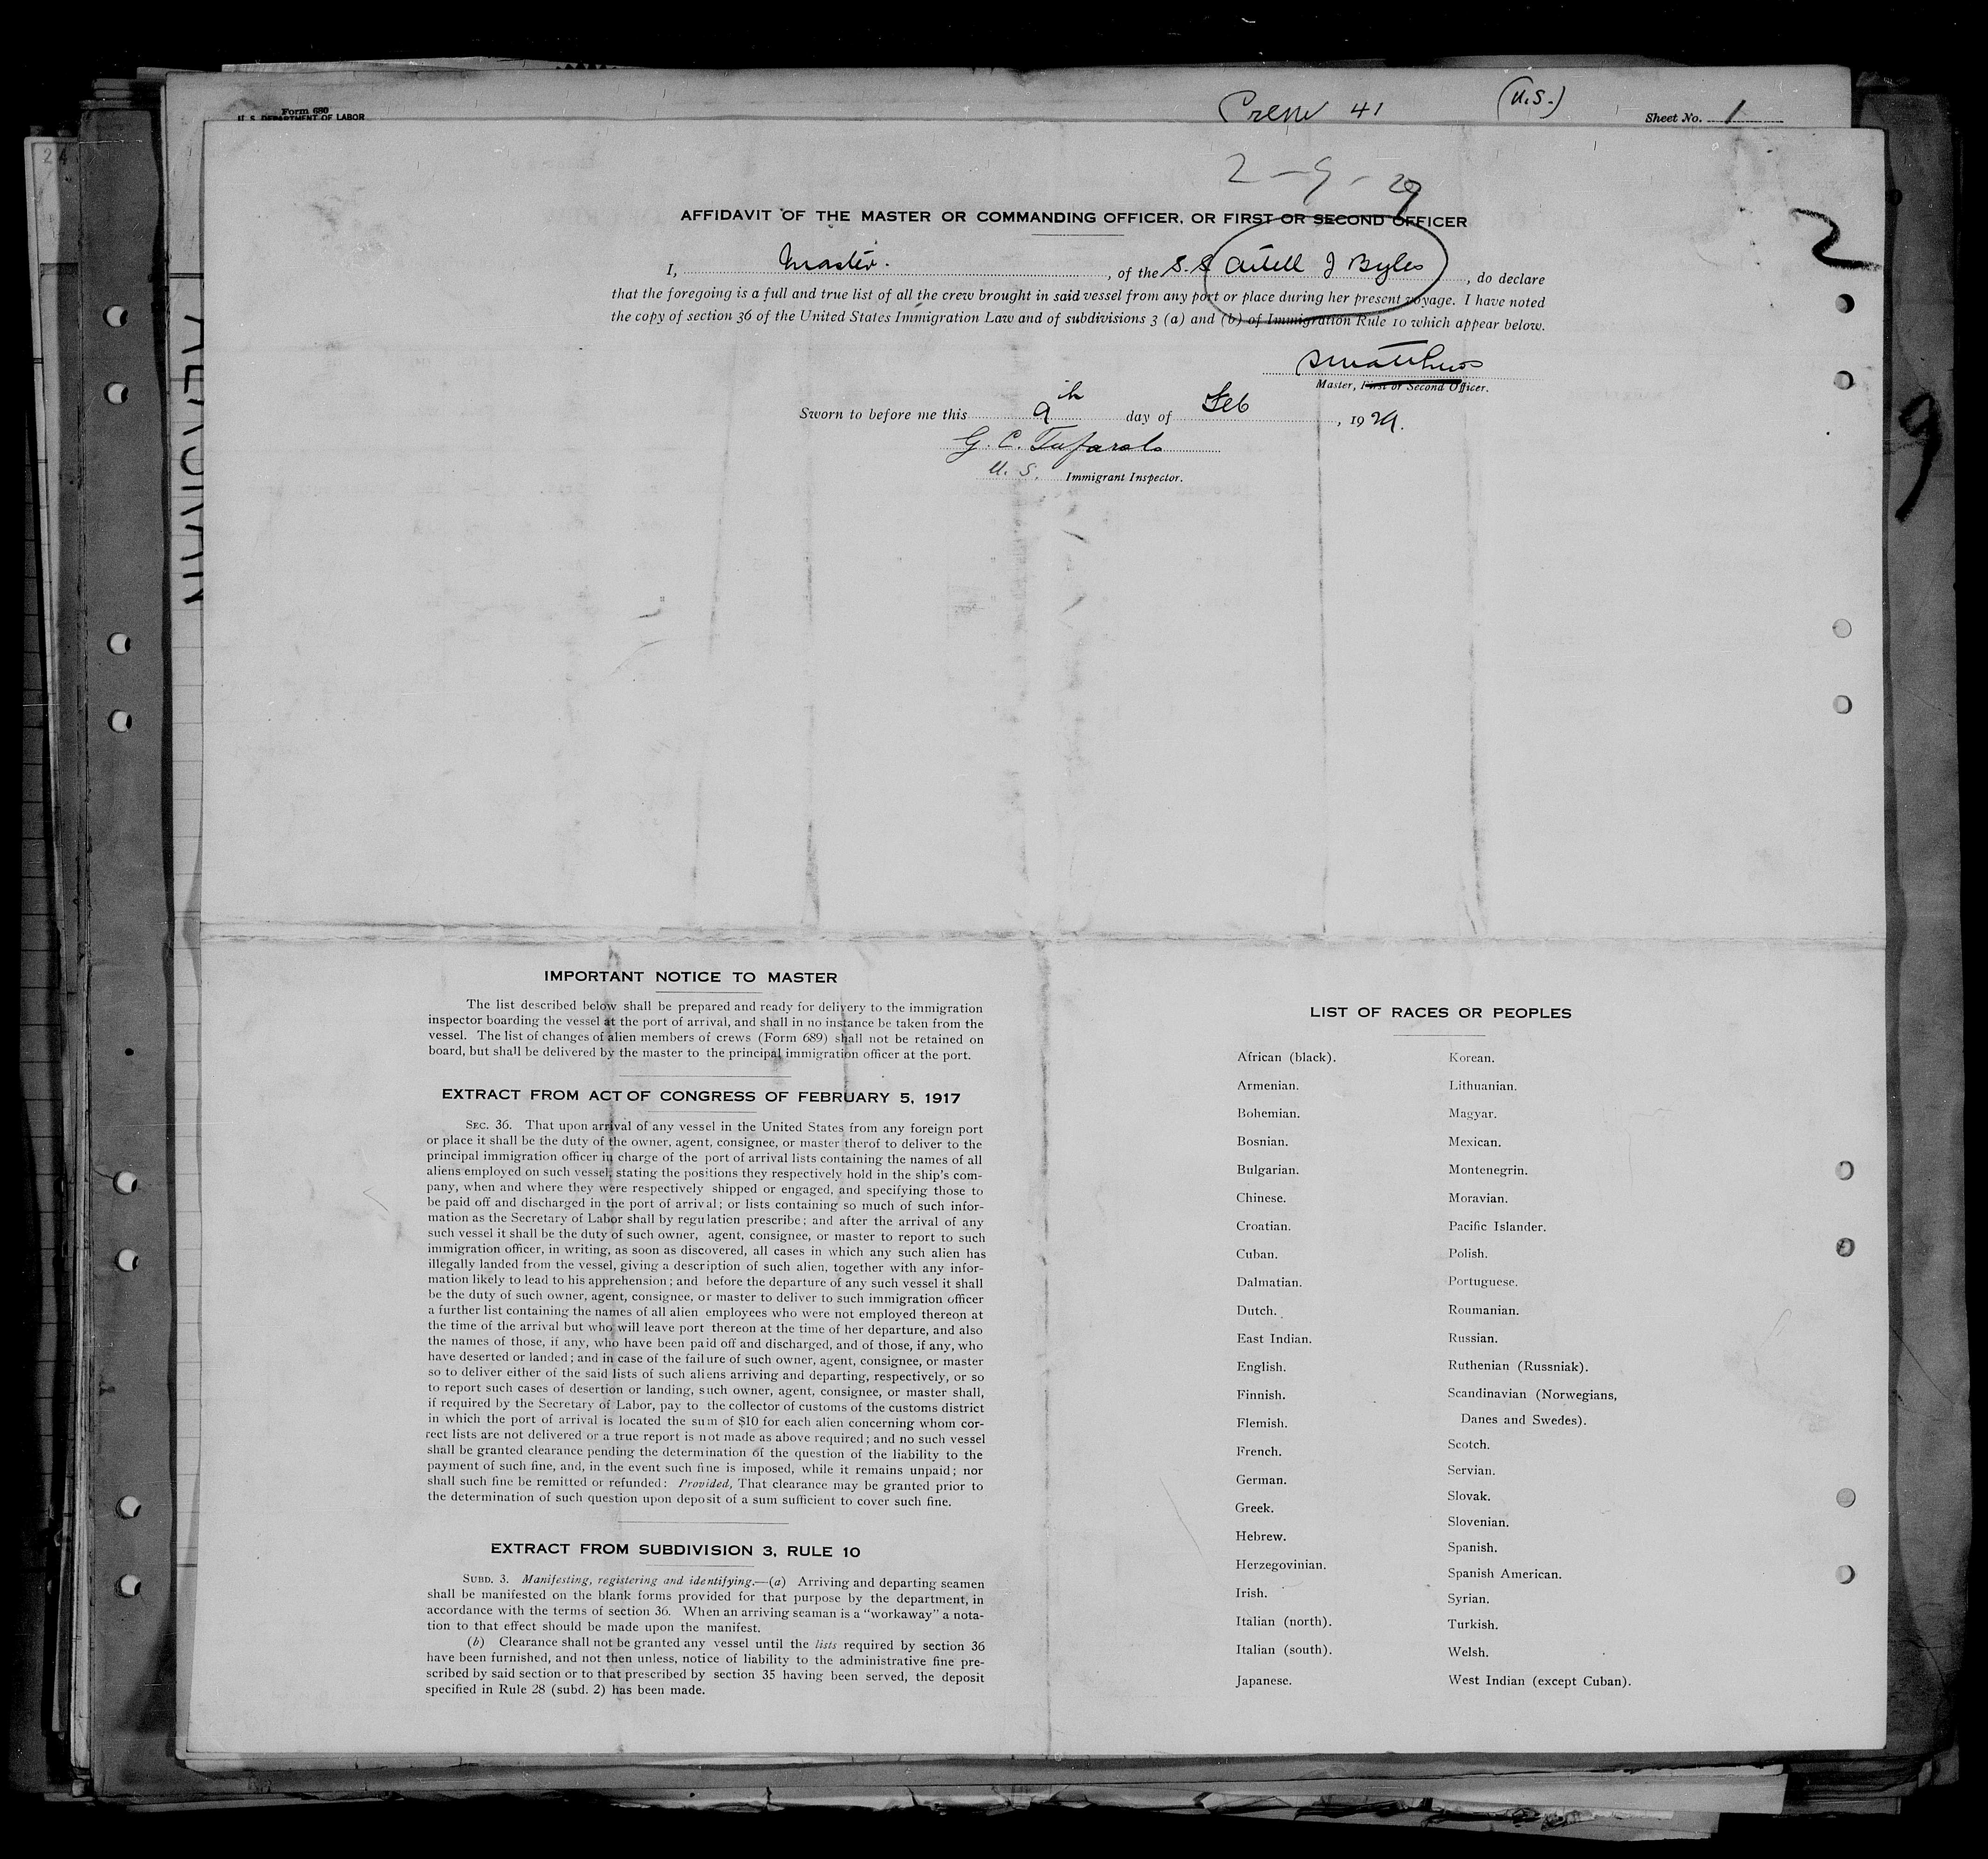 Form 680
U. S. DEPARTMENT OF LABOR
Crew 41
(U.S.)
Sheet No. 1
2 - 9 - 29
2
9
AFFIDAVIT OF THE MASTER OR COMMANDING OFFICER, OR FIRST OR SECOND OFFICER
I, Master, of the S.S. Axtell J Byles, do declare
that the foregoing is a full and true list of all the crew brought in said vessel from any port or place during her present voyage. I have noted
the copy of section 36 of the United States Immigration Law and of subdivisions 3 (a) and (b) of Immigration Rule 10 which appear below.
Master, First or Second Officer.
Sworn to before me this 9th day of Feb, 1929.
G. C.
U. S. Immigrant Inspector.
IMPORTANT NOTICE TO MASTER
The list described below shall be prepared and ready for delivery to the immigration
inspector boarding the vessel at the port of arrival, and shall in no instance be taken from the
vessel. The list of changes of alien members of crews (Form 689) shall not be retained on
board, but shall be delivered by the master to the principal immigration officer at the port.
EXTRACT FROM ACT OF CONGRESS OF FEBRUARY 5, 1917
SEC. 36. That upon arrival of any vessel in the United States from any foreign port
or place it shall be the duty of the owner, agent, consignee, or master therof to deliver to the
principal immigration officer in charge of the port of arrival lists containing the names of all
aliens employed on such vessel, stating the positions they respectively hold in the ship's com-
pany, when and where they were respectively shipped or engaged, and specifying those to
be paid off and discharged in the port of arrival; or lists containing so much of such infor-
mation as the Secretary of Labor shall by regulation prescribe; and after the arrival of any
such vessel it shall be the duty of such owner, agent, consignee, or master to report to such
immigration officer, in writing, as soon as discovered, all cases in which any such alien has
illegally landed from the vessel, giving a description of such alien, together with any infor-
mation likely to lead to his apprehension; and before the departure of any such vessel it shall
be the duty of such owner, agent, consignee, or master to deliver to such immigration officer
a further list containing the names of all alien employees who were not employed thereon at
the time of the arrival but who will leave port thereon at the time of her departure, and also
the names of those, if any, who have been paid off and discharged, and of those, if any, who
have deserted or landed; and in case of the failure of such owner, agent, consignee, or master
so to deliver either of the said lists of such aliens arriving and departing, respectively, or so
to report such cases of desertion or landing, such owner, agent, consignee, or master shall,
if required by the Secretary of Labor, pay to the collector of customs of the customs district
in which the port of arrival is located the sum of $10 for each alien concerning whom cor-
rect lists are not delivered or a true report is not made as above required; and no such vessel
shall be granted clearance pending the determination of the question of the liability to the
payment of such fine, and, in the event such fine is imposed, while it remains unpaid; nor
shall such fine be remitted or refunded: Provided, That clearance may be granted prior to
the determination of such question upon deposit of a sum sufficient to cover such fine.
EXTRACT FROM SUBDIVISION 3, RULE 10
SUBD. 3. Manifesting, registering and identifying.—(a) Arriving and departing seamen
shall be manifested on the blank forms provided for that purpose by the department, in
accordance with the terms of section 36. When an arriving seaman is a "workaway" a nota-
tion to that effect should be made upon the manifest.
(b) Clearance shall not be granted any vessel until the lists required by section 36
have been furnished, and not then unless, notice of liability to the administrative fine pre-
scribed by said section or to that prescribed by section 35 having been served, the deposit
specified in Rule 28 (subd. 2) has been made.
LIST OF RACES OR PEOPLES
African (black).
Armenian.
Bohemian.
Bosnian.
Bulgarian.
Chinese.
Croatian.
Cuban.
Dalmatian.
Dutch.
East Indian.
English.
Finnish.
Flemish.
French.
German.
Greek.
Hebrew.
Herzegovinian.
Irish.
Italian (north).
Italian (south).
Japanese.
Korean.
Lithuanian.
Magyar.
Mexican.
Montenegrin.
Moravian.
Pacific Islander.
Polish.
Portuguese.
Roumanian.
Russian.
Ruthenian (Russniak).
Scandinavian (Norwegians,
Danes and Swedes).
Scotch.
Servian.
Slovak.
Slovenian.
Spanish.
Spanish American.
Syrian.
Turkish.
Welsh.
West Indian (except Cuban).